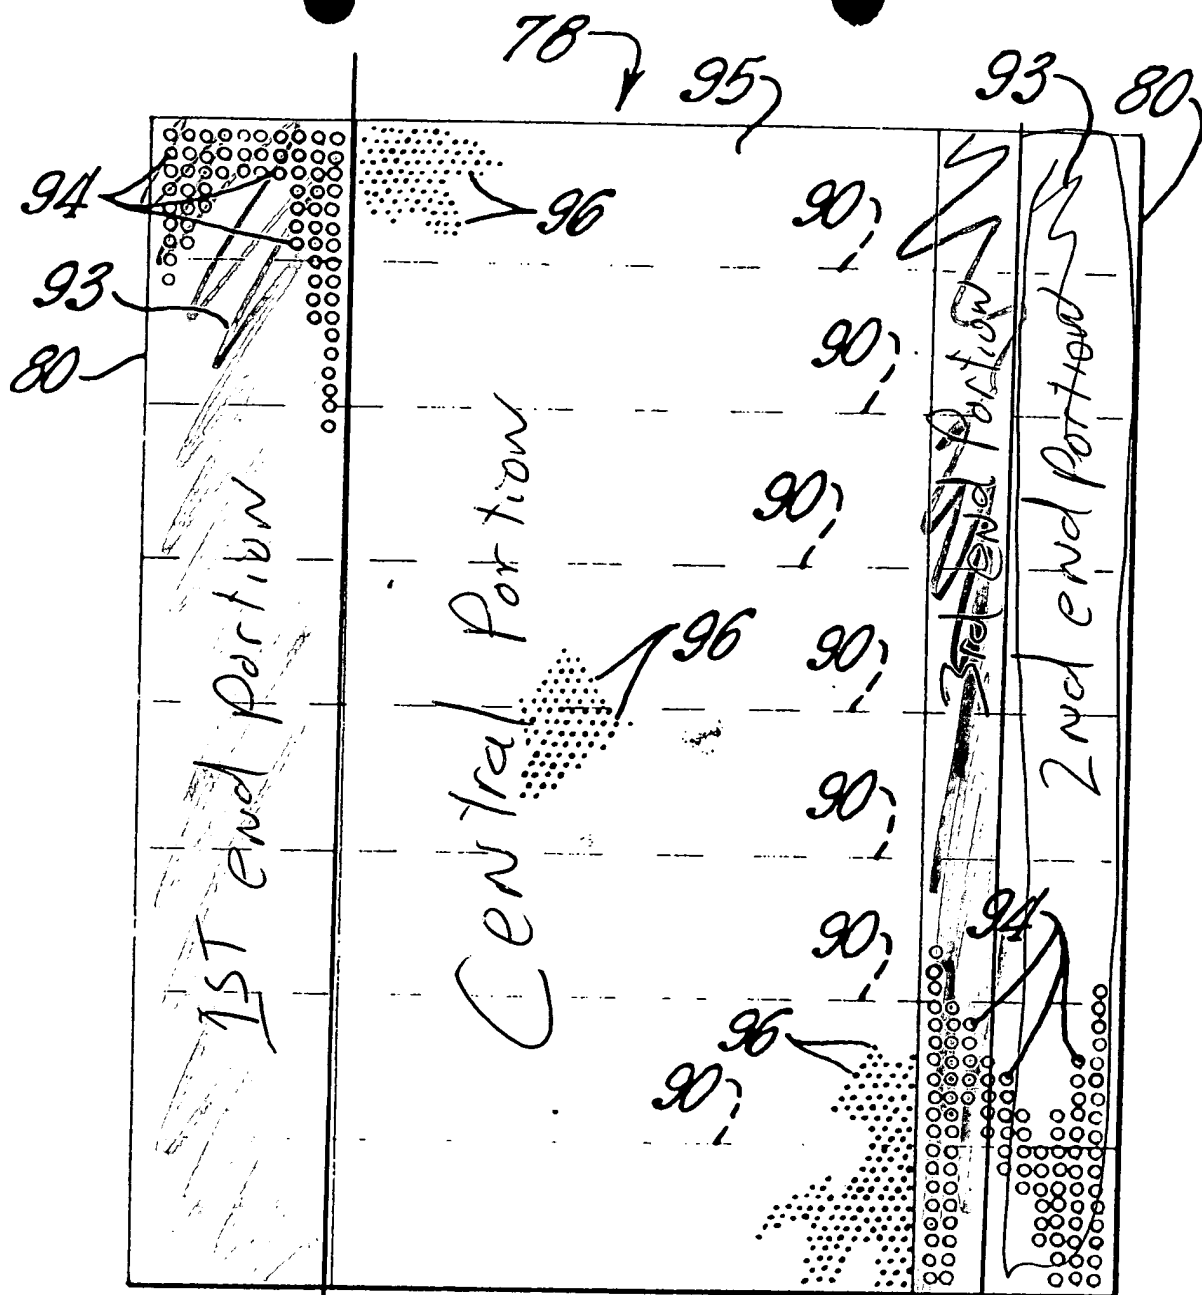 78
95
93
80
94
96
90
93
90
80
90
96
90
90
94
90
96
90
1ST end portion
Central Portion
3rd end Portion
2nd end portion